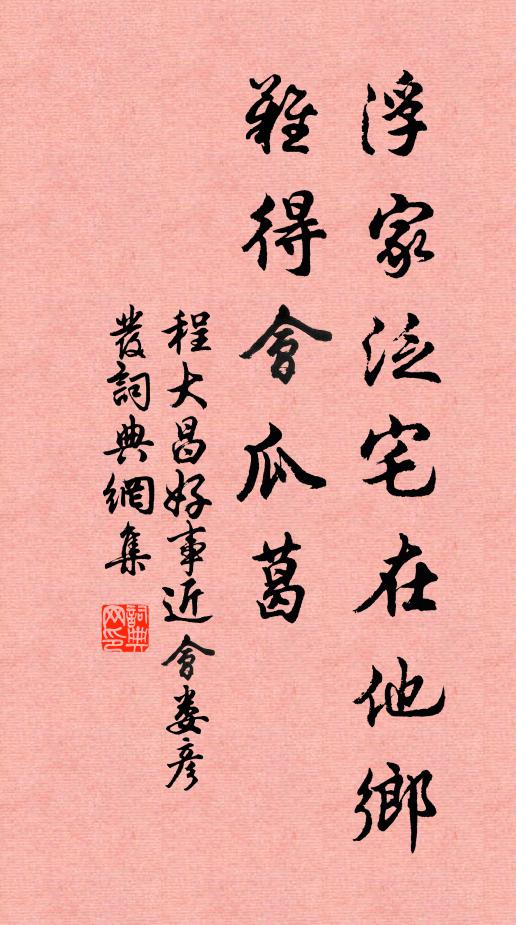 浮家泛宅在他鄉
難得會瓜葛
程大昌好事近會婁彥
發詞典網集
詞典
网印